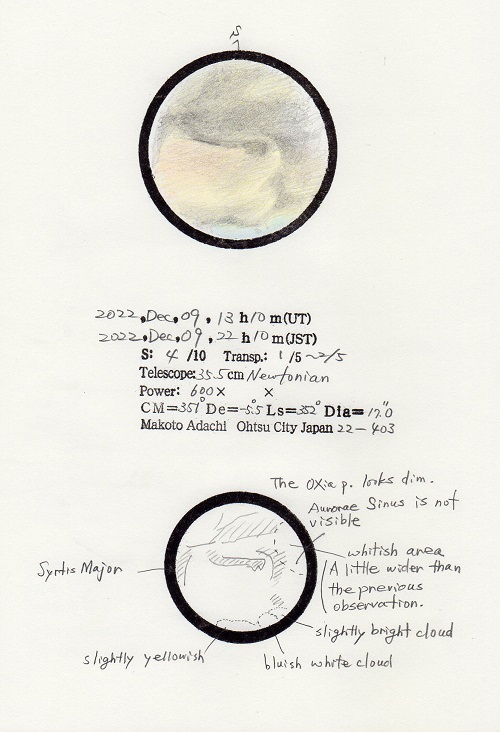 S
2022, Dec, 09, 13 h 10 m (UT)
2022, Dec, 09, 22 h 10 m (JST)
S: 4 /10 Transp.: 1 /5 ~ 2/5
Telescope: 35.5 cm Newtonian
Power: 600 × ×
CM=351° De=-5.5° Ls=352° Dia=17.0"
Makoto Adachi Ohtsu City Japan 22-403
The Oxia p. looks dim.
Aurorae Sinus is not
visible
whitish area
A little wider than
the previous
observation.
Syrtis Major
slightly bright cloud
slightly yellowish
bluish white cloud